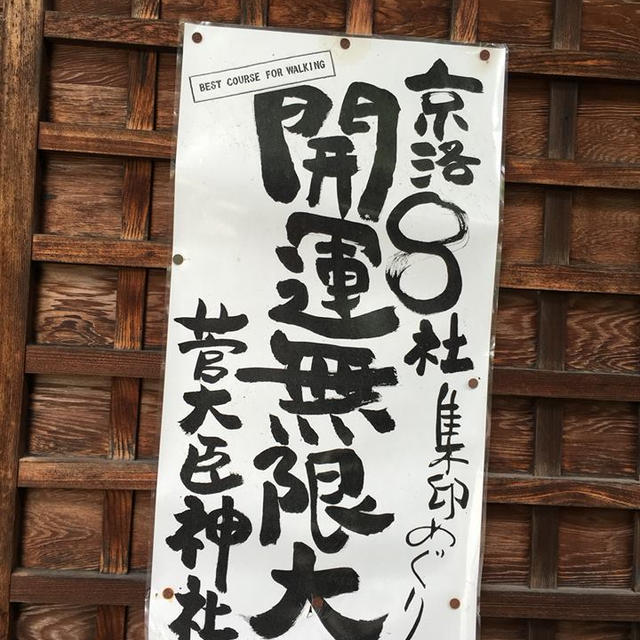 BEST COURSE FOR WALKING
京洛8社集印めぐり
開運無限大
菅大臣神社